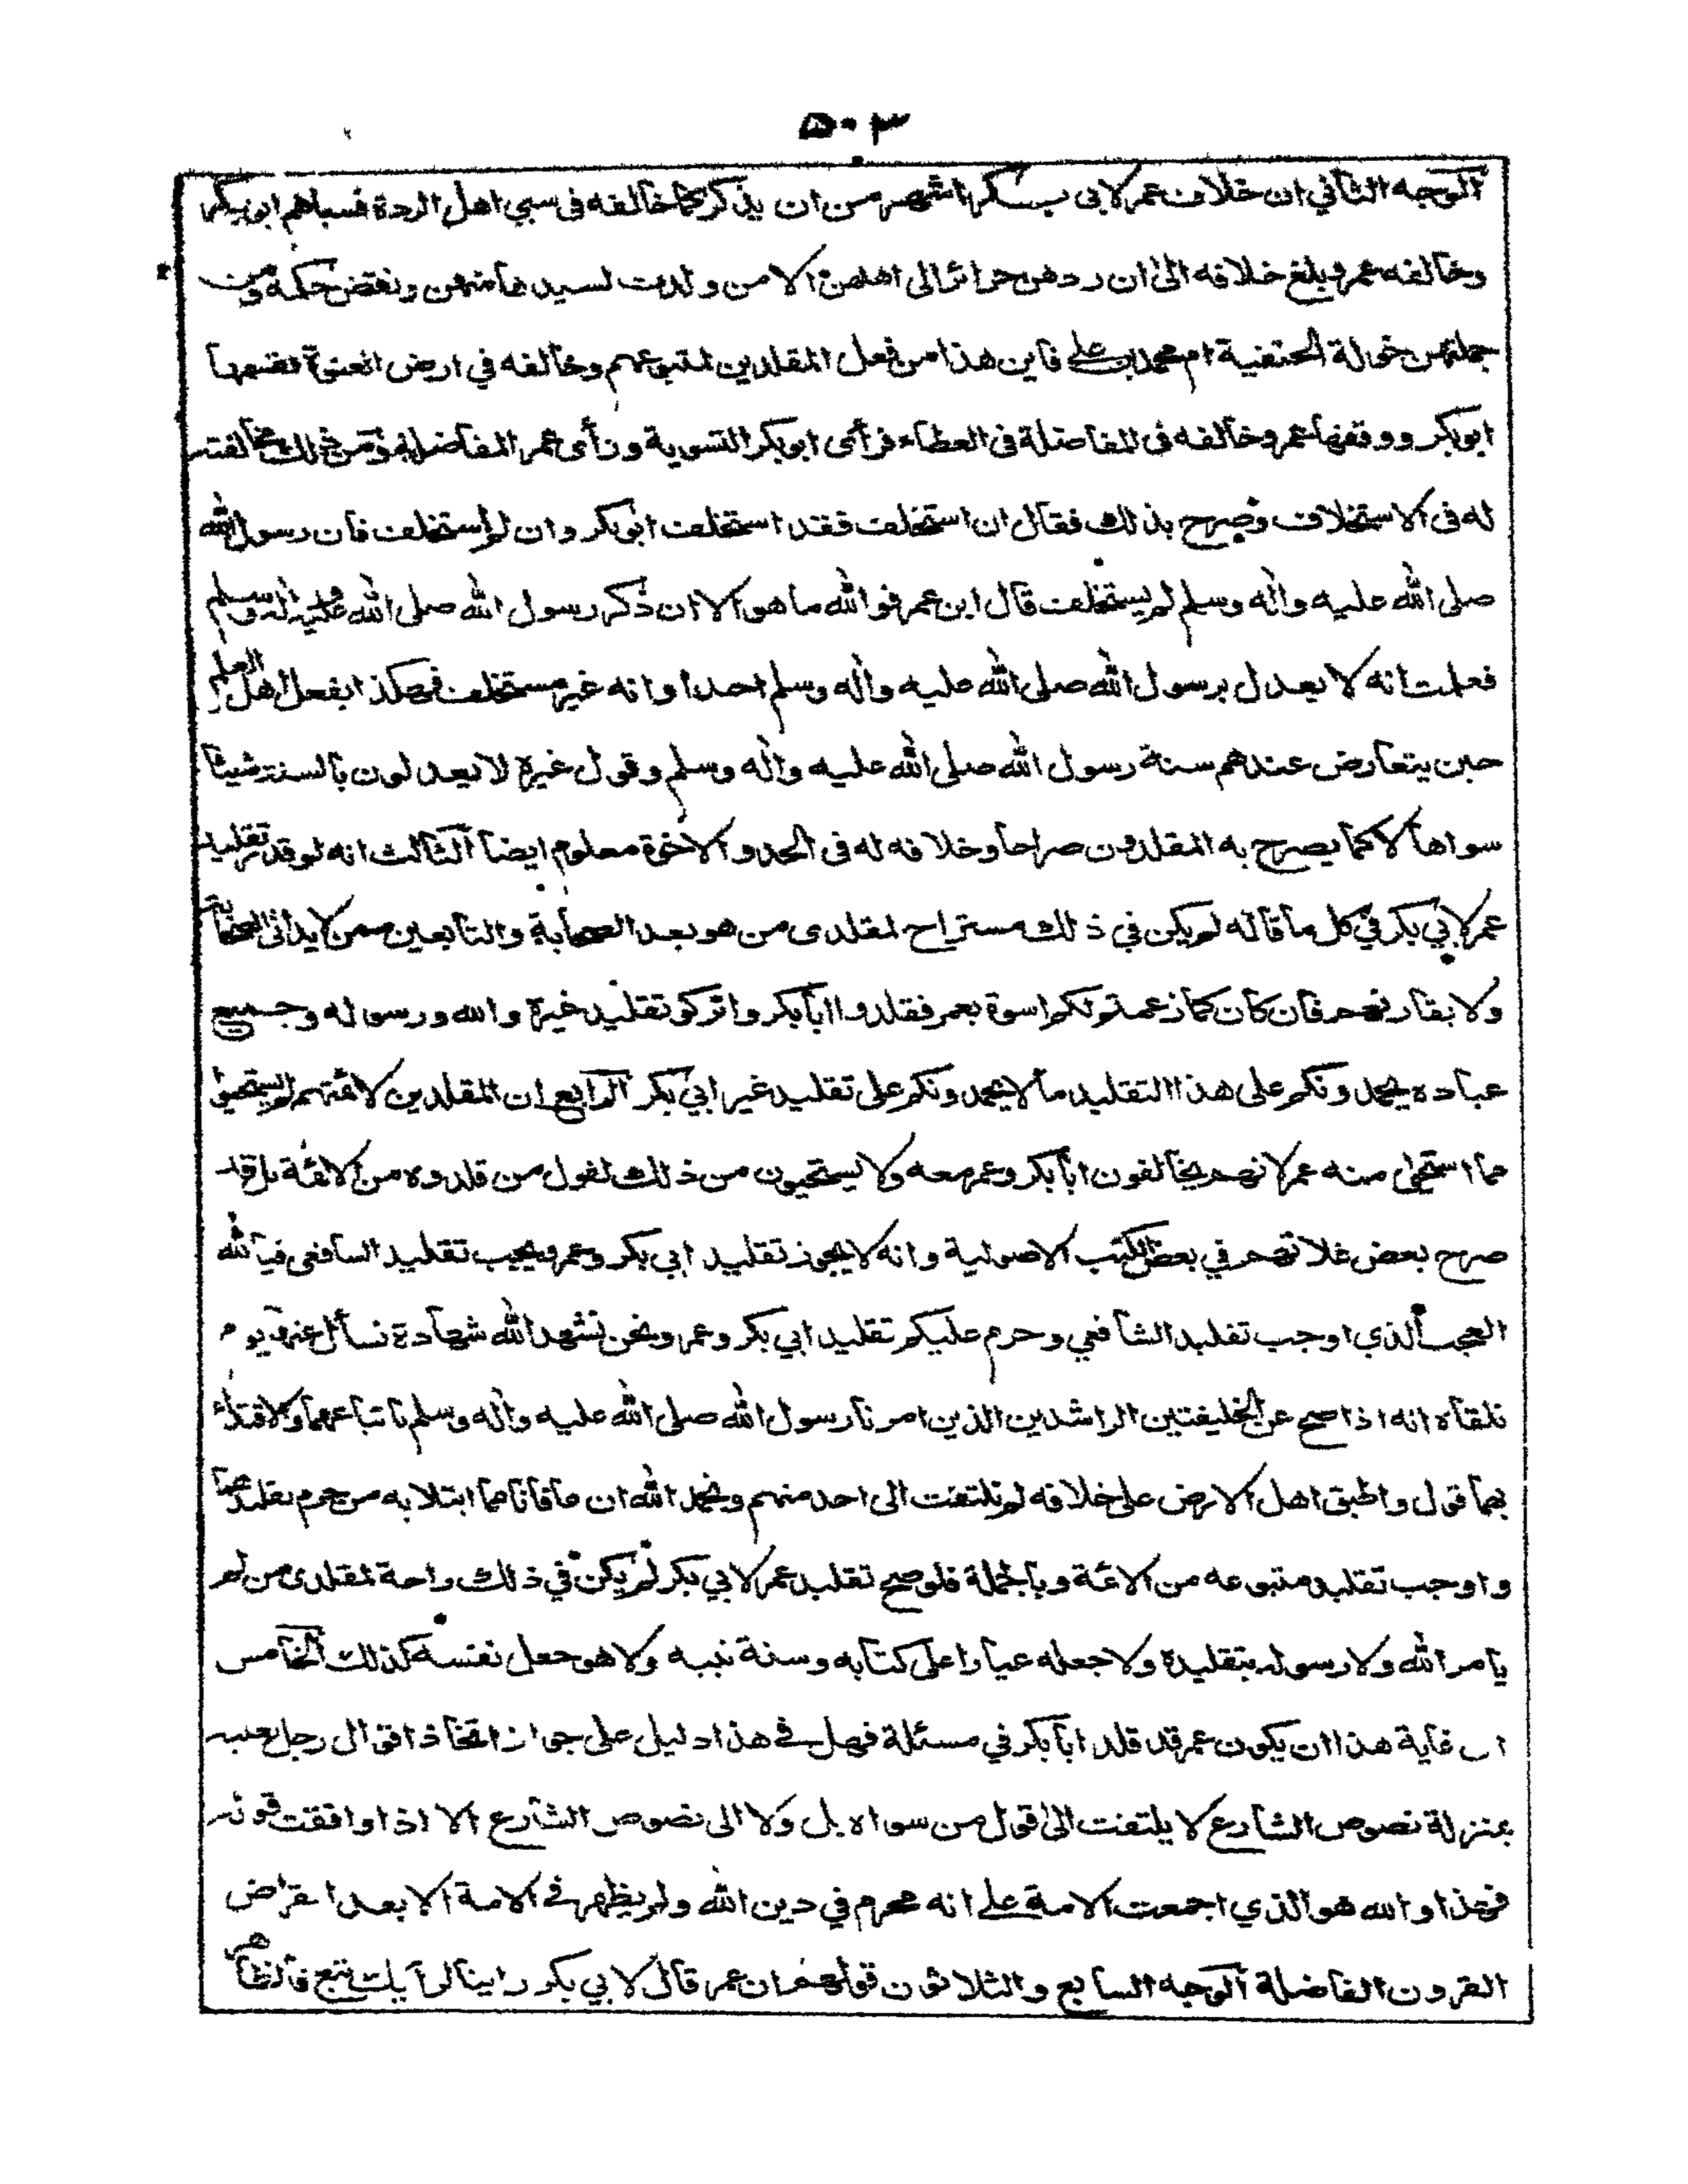 ٥٠٣
الوجه الثاني ان خلاف عمر لابي بكر اشهر من ان يذكر كما خالفه فى سبي اهل الردة فسباهم ابو بكر
وخالفه عمر وبلغ خلافه الى ان ردهن حرائر الى اهلهن الا من ولدت لسيدها منهن ونقض حكمه ومن
جملتهن خولة الحنفية ام محمد بن علي فاين هذا من فعل المقلدين لمتبوعهم وخالفه في ارض العنوة فقسمها
ابو بكر ووقفها عمر وخالفه فى المفاضلة فى العطاء فرأى ابو بكر التسوية ورأى عمر المفاضلة ومن ذلك مخالفته
له فى الاستخلاف وصرح بذلك فقال ان استخلف فقد استخلف ابو بكر وان لم استخلف فان رسول الله
صلى الله عليه واله وسلم لم يستخلف قال ابن عمر فوالله ما هو الا ان ذكر رسول الله صلى الله عليه واله وسلم
فعلمت انه لا يعدل برسول الله صلى الله عليه واله وسلم احدا وانه غير مستخلف فهكذا يفعل اهل العلم
حين يتعارض عندهم سنة رسول الله صلى الله عليه واله وسلم وقول غيره لا يعدلون بالسنة شيئا
سواها لا كما يصرح به المقلدون صراحا وخلافه له فى الجد والاخوة معلوم ايضا الثالث انه لو قدر تقليد
عمر لابي بكر في كل ما قاله لم يكن في ذلك مستراح لمقلدى من هو بعد الصحابة والتابعين ممن لا يدانى الصحابة
ولا يقاربهم فان كان كما زعمتم لكم اسوة بعمر فقلدوا ابا بكر واتركو تقليد غيره والله ورسوله وجميع
عباده يحمدونكم على هذا التقليد ما لا يحمدونكم على تقليد غير ابي بكر الرابع ان المقلدين لائمتهم لم يستحيوا
مما استحيى منه عمر لانهم يخالفون ابا بكر وعمر معه ولا يستحيون من ذلك لقول من قلدوه من الائمة بل قد
صرح بعض غلاتهم في بعض الكتب الاصولية وانه لا يجوز تقليد ابي بكر وعمر ويجب تقليد السافعى فيا لله
العجب الذي اوجب تقليد الشافعي وحرم عليكم تقليد ابي بكر وعمر ونحن نشهد الله شهادة نسأل عنها يوم
نلقاه انه اذا صح عن الخليفتين الراشدين الذين امرنا رسول الله صلى الله عليه واله وسلم باتباعهما والاقتداء
بهما قول واطبق اهل الارض على خلافه لم نلتفت الى احد منهم ونحمد الله ان عافانا مما ابتلا به من حرم تقليدهما
واوجب تقليد متبوعه من الائمة وبالجملة فلو صح تقليد عمر لابي بكر لم يكن في ذلك راحة لمقلدى من لم
يامر الله ولا رسوله بتقليده ولا جعله عيارا على كتابه وسنة نبيه ولا هو جعل نفسه كذلك الخامس
ان غاية هذا ان يكون عمر قد قلد ابا بكر في مسئلة فهل في هذا دليل على جواز اتخاذ اقوال رجل بعينه
بمنزلة نصوص الشارع لا يلتفت الى قول من سواه بل ولا الى نصوص الشارع الا اذا وافقت قوله
فهذا والله هو الذي اجمعت الامة على انه محرم في دين الله ولم يظهر في الامة الا بعد انقراض
القرون الفاضلة الوجه السابع والثلاثون قولهم ان عمر قال لابي بكر راينا لرأيك تبع فالظاهر